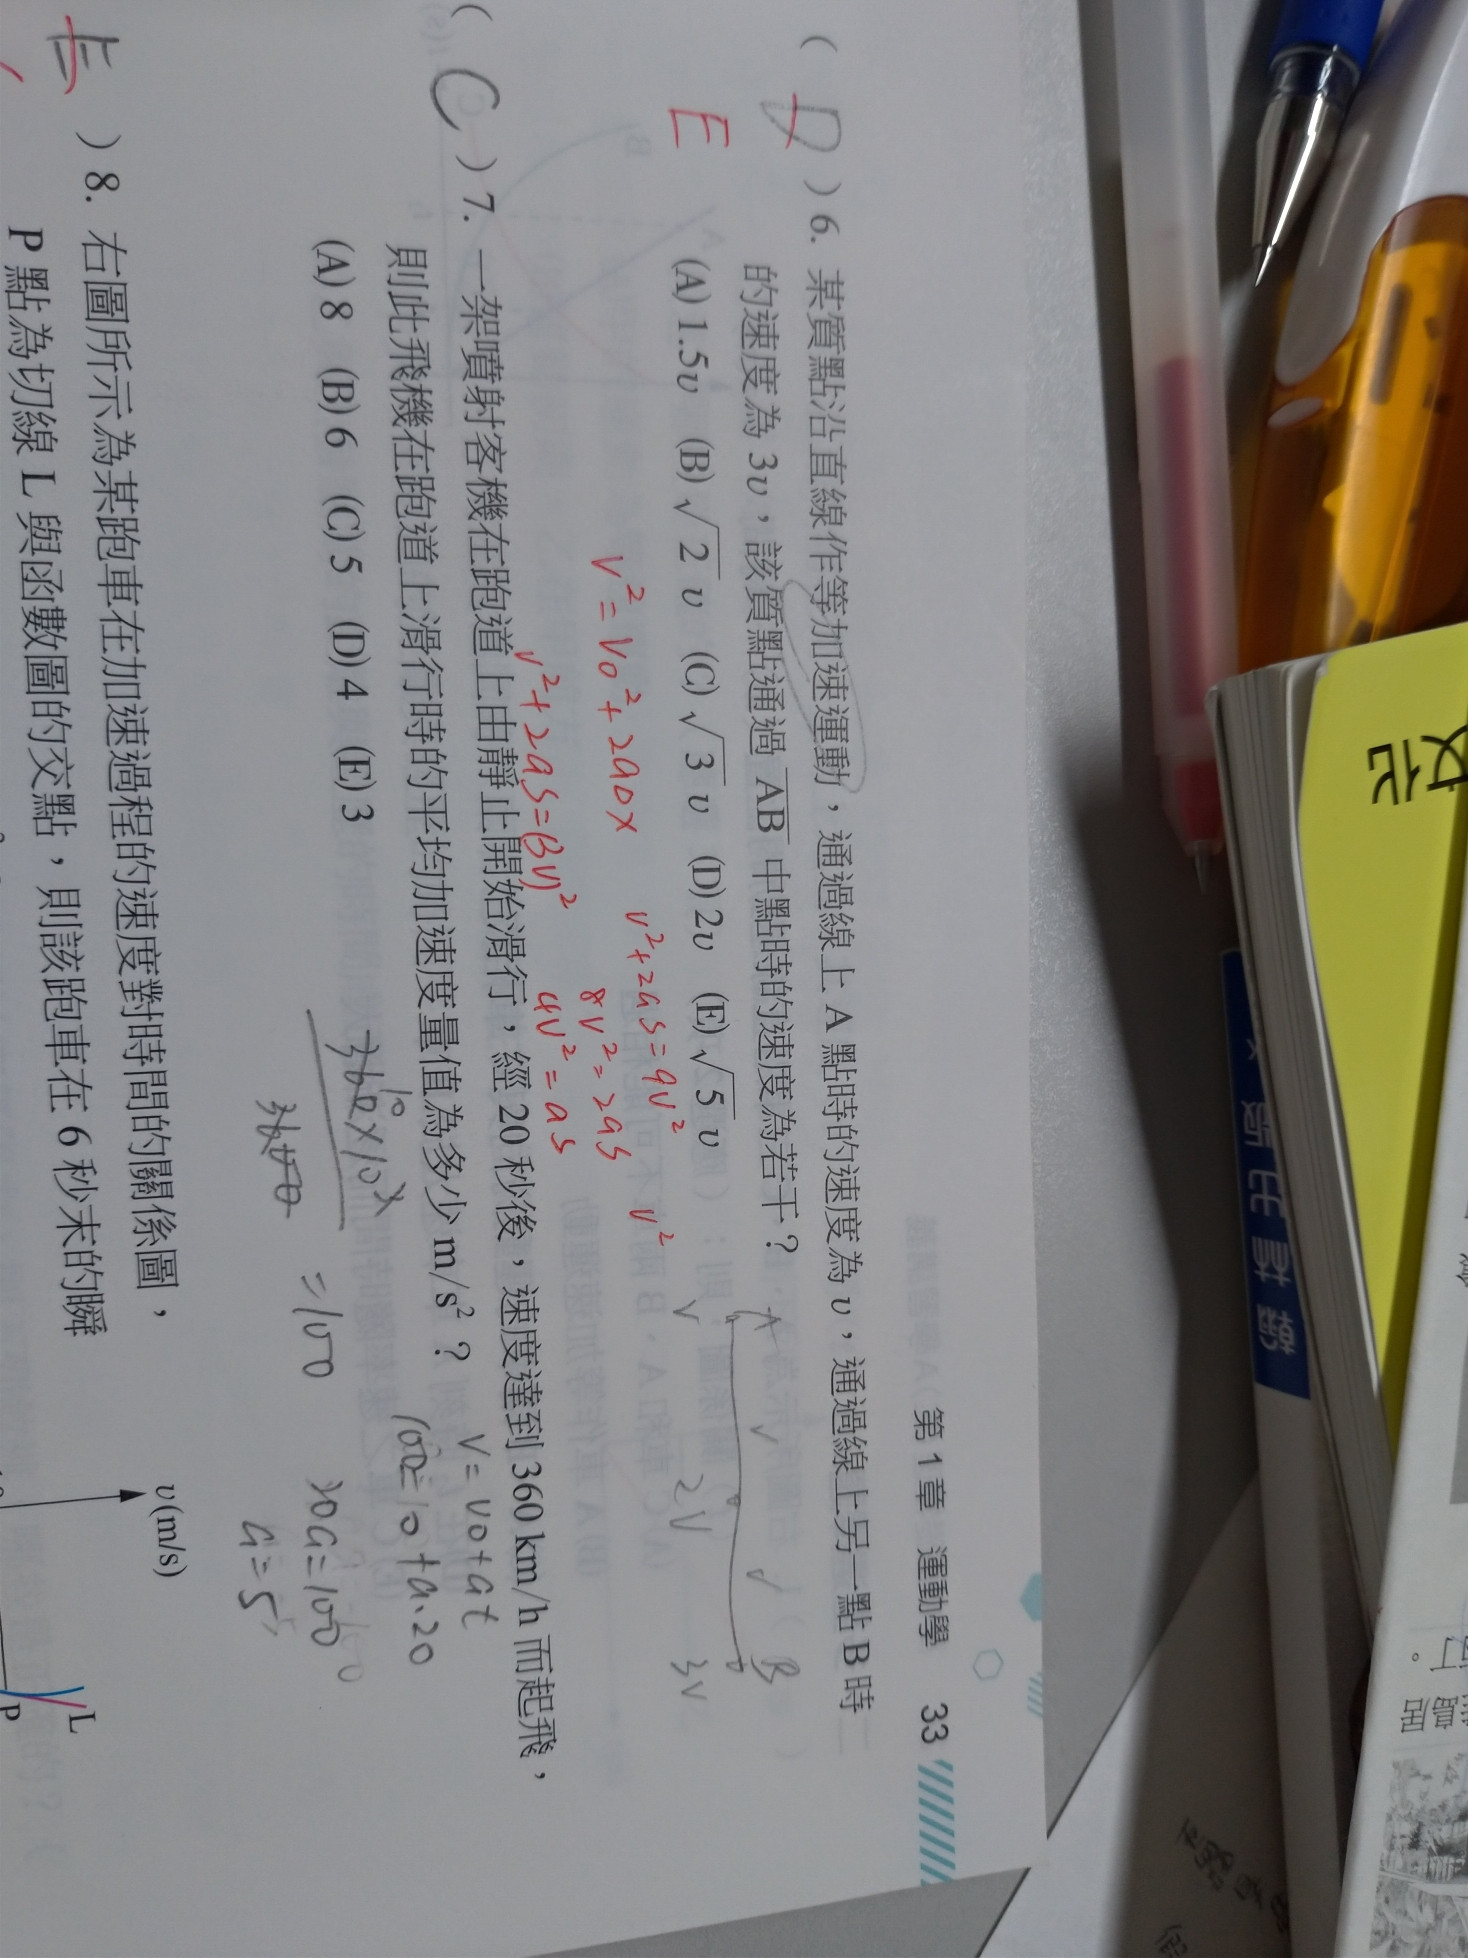 第 1 章 運動學 33
( D ) 6. 某質點沿直線作等加速運動，通過線上 A 點時的速度為 v，通過線上另一點 B 時
E
的速度為 3v，該質點通過 AB 中點時的速度為若干？
(A) 1.5v (B) √2 v (C) √3 v (D) 2v (E) √5 v
A v v B
v 2v 3v
v²+2as=9v² v²
v²=v0²+2a0x 8v²=2as
v²+2as=(3v)² 4v²=as
( C ) 7. 一架噴射客機在跑道上由靜止開始滑行，經 20 秒後，速度達到 360 km/h 而起飛，
則此飛機在跑道上滑行時的平均加速度量值為多少 m/s²？
(A) 8 (B) 6 (C) 5 (D) 4 (E) 3
v=v0+at
100=0+a.20
=100 20a=100
a=5
E ) 8. 右圖所示為某跑車在加速過程的速度對時間的關係圖，
P 點為切線 L 與函數圖的交點，則該跑車在 6 秒末的瞬
v(m/s)
L
P
文化